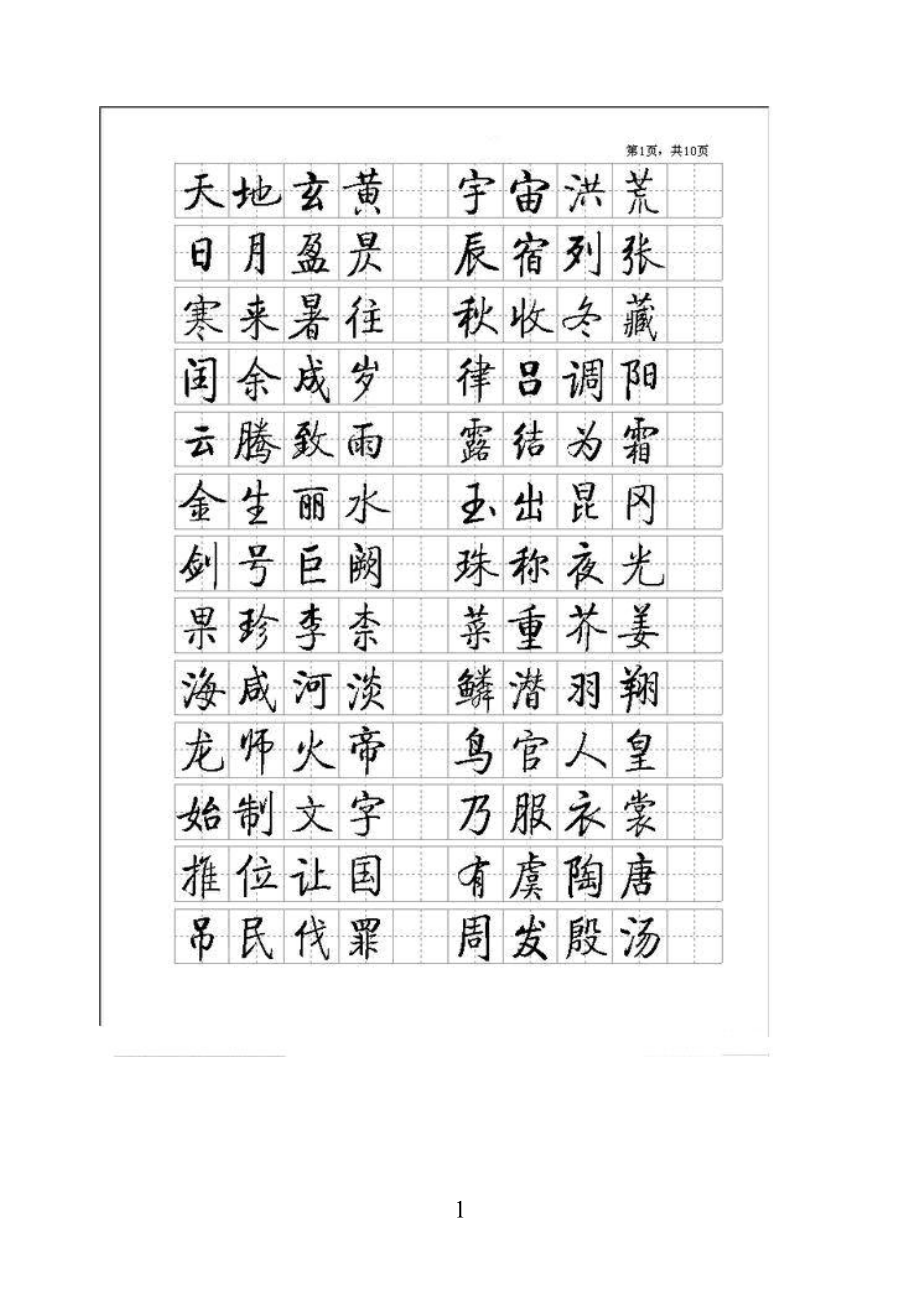 第1页，共10页
天地玄黄 宇宙洪荒
日月盈昃 辰宿列张
寒来暑往 秋收冬藏
闰余成岁 律吕调阳
云腾致雨 露结为霜
金生丽水 玉出昆冈
剑号巨阙 珠称夜光
果珍李柰 菜重芥姜
海咸河淡 鳞潜羽翔
龙师火帝 鸟官人皇
始制文字 乃服衣裳
推位让国 有虞陶唐
吊民伐罪 周发殷汤
1